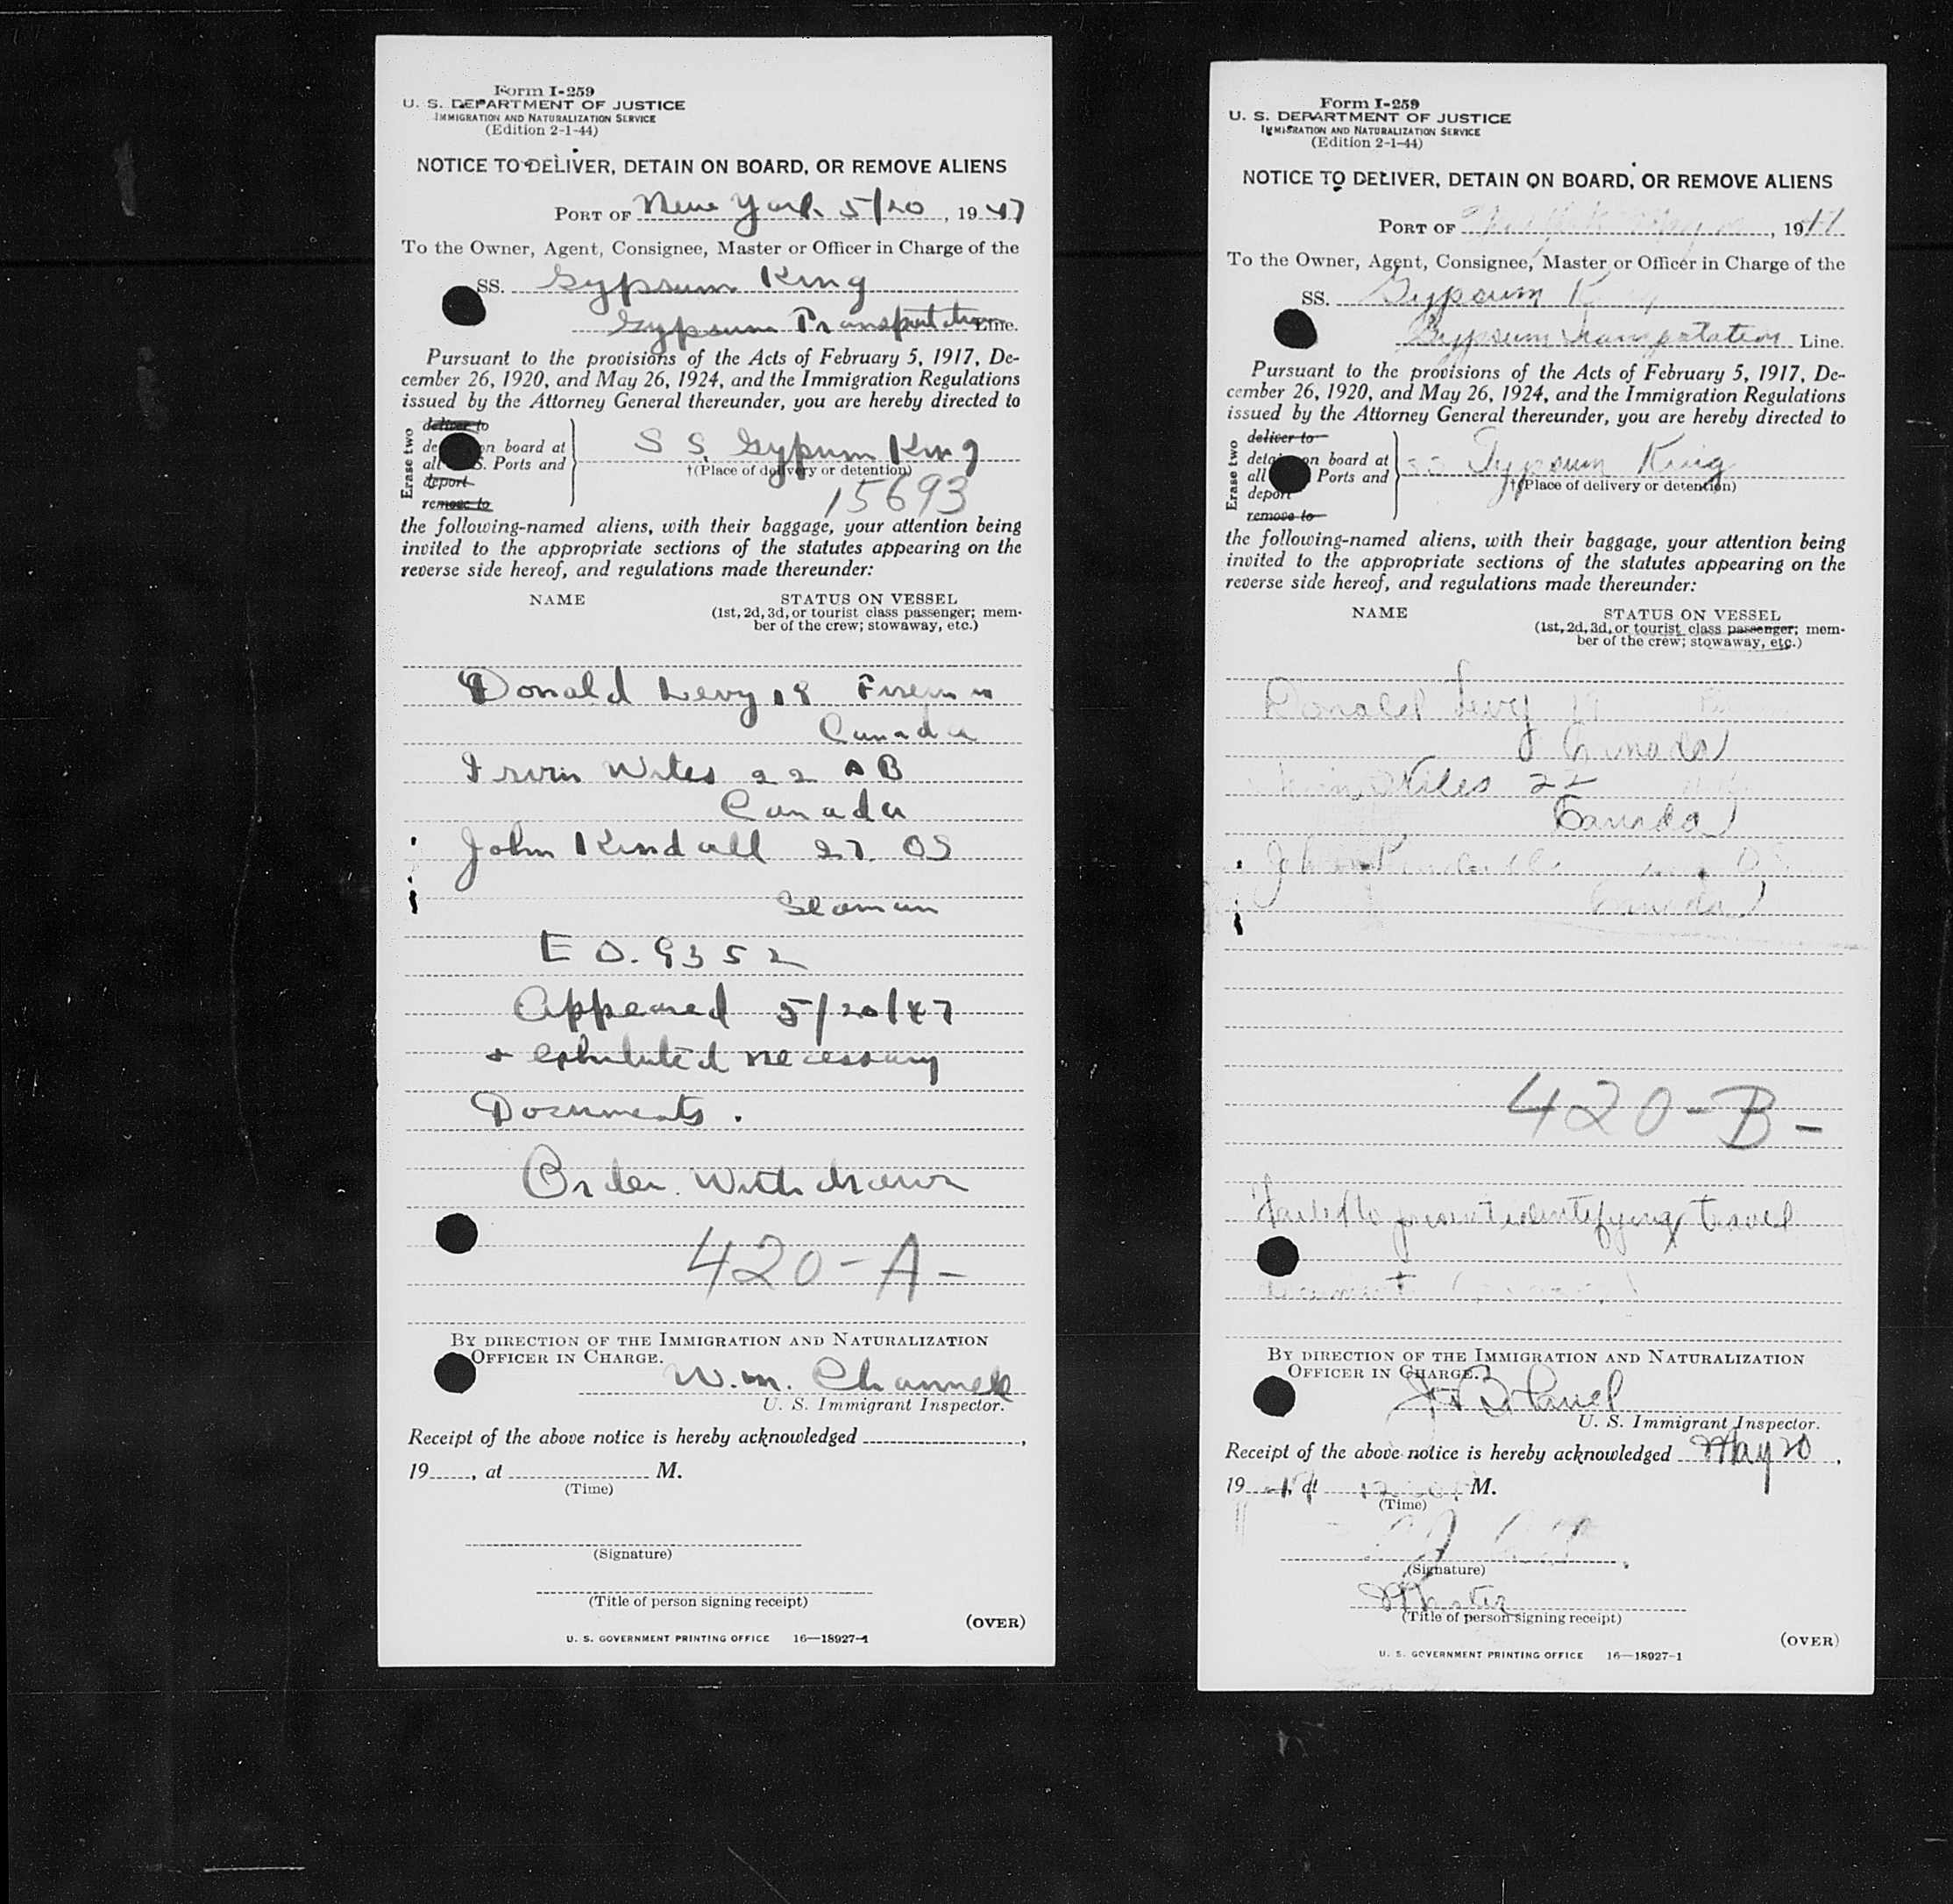 Form I-259
U. S. DEPARTMENT OF JUSTICE
IMMIGRATION AND NATURALIZATION SERVICE
(Edition 2-1-44)
NOTICE TO DELIVER, DETAIN ON BOARD, OR REMOVE ALIENS
PORT OF New York 5/20, 1947
To the Owner, Agent, Consignee, Master or Officer in Charge of the
SS. Gypsum King
Gypsum Transportation Line.
Pursuant to the provisions of the Acts of February 5, 1917, De-
cember 26, 1920, and May 26, 1924, and the Immigration Regulations
issued by the Attorney General thereunder, you are hereby directed to
Erase two
deliver to
on board at
all Ports and
deport
remove to
S S. Gypsum King
†(Place of delivery or detention)
15693
the following-named aliens, with their baggage, your attention being
invited to the appropriate sections of the statutes appearing on the
reverse side hereof, and regulations made thereunder:
NAME STATUS ON VESSEL
(1st, 2d, 3d, or tourist class passenger; mem-
ber of the crew; stowaway, etc.)
Donald Levy 19 Fireman
Canada
Irvin Wiles 22 AB
Canada
John Kendall 27 OS
Seaman
E O. 9352
Appeared 5/20/47
+ exhibited necessary
Documents.
Order Withdrawn
420-A-
BY DIRECTION OF THE IMMIGRATION AND NATURALIZATION
OFFICER IN CHARGE.
W.m. Channell
U. S. Immigrant Inspector.
Receipt of the above notice is hereby acknowledged ,
19 , at M.
(Time)
(Signature)
(Title of person signing receipt)
(OVER)
U. S. GOVERNMENT PRINTING OFFICE 16—18927-1
Form I-259
U. S. DEPARTMENT OF JUSTICE
IMMIGRATION AND NATURALIZATION SERVICE
(Edition 2-1-44)
NOTICE TO DELIVER, DETAIN ON BOARD, OR REMOVE ALIENS
PORT OF , 1947
To the Owner, Agent, Consignee, Master or Officer in Charge of the
SS. Gypsum King
Gypsum Transpotation Line.
Pursuant to the provisions of the Acts of February 5, 1917, De-
cember 26, 1920, and May 26, 1924, and the Immigration Regulations
issued by the Attorney General thereunder, you are hereby directed to
Erase two
deliver to
detain on board at
all Ports and
deport
remove to
SS Gypsum King
†(Place of delivery or detention)
the following-named aliens, with their baggage, your attention being
invited to the appropriate sections of the statutes appearing on the
reverse side hereof, and regulations made thereunder:
NAME STATUS ON VESSEL
(1st, 2d, 3d, or tourist class passenger; mem-
ber of the crew; stowaway, etc.)
Donald Levy 19
Canada
Wiles 22
Canada
John Kendall OS
Canada
420-B-
Failed to present identifying travel
document
BY DIRECTION OF THE IMMIGRATION AND NATURALIZATION
OFFICER IN CHARGE.
U. S. Immigrant Inspector.
Receipt of the above notice is hereby acknowledged May 20,
1947, at M.
(Time)
(Signature)
Master
(Title of person signing receipt)
(OVER)
U. S. GOVERNMENT PRINTING OFFICE 16—18927-1